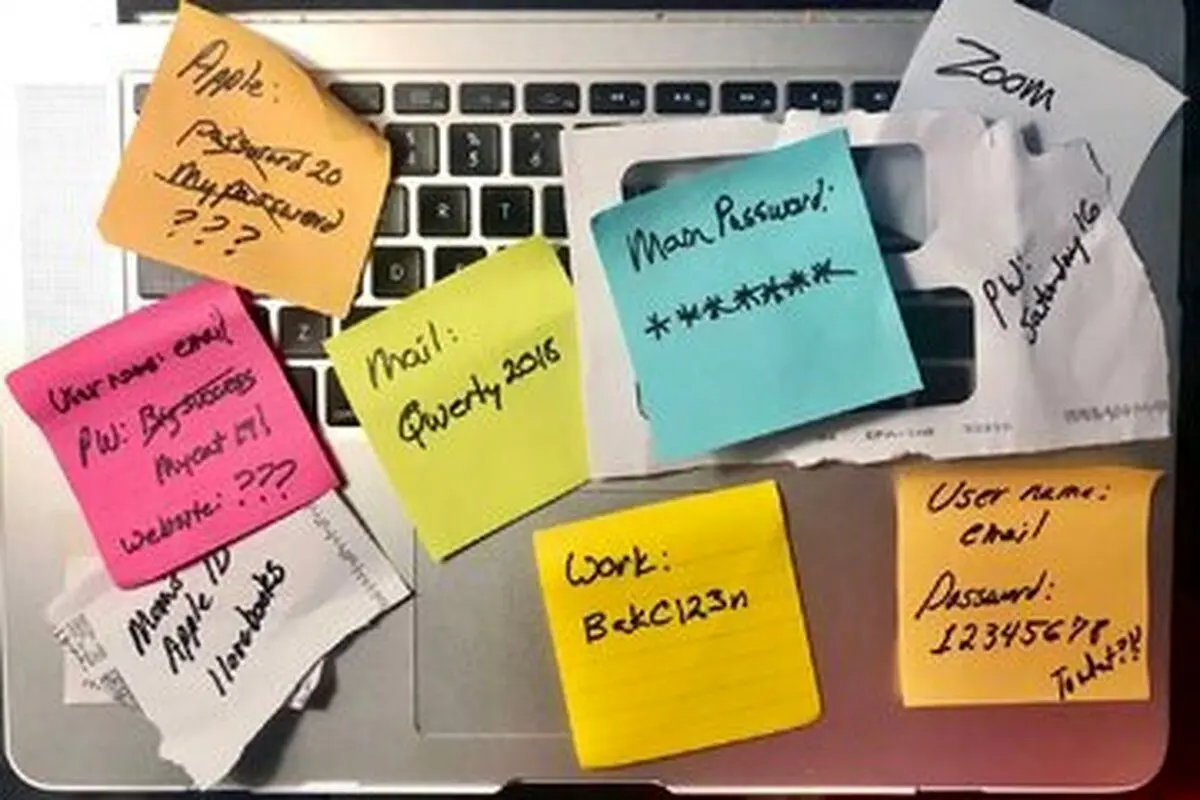 Apple:
Password 20
Mypassword
???
Zoom
PW:
Saturday 16
Main Password:
*******
User name: email
PW: Bigsuccess
Mycat 1!1
website: ???
Mail:
Qwerty 2018
Mom's
Apple ID
Ilovebooks
Work:
BakC123n
User name:
email
Password:
12345678
To what??
4
5
6
R
T
D
Z